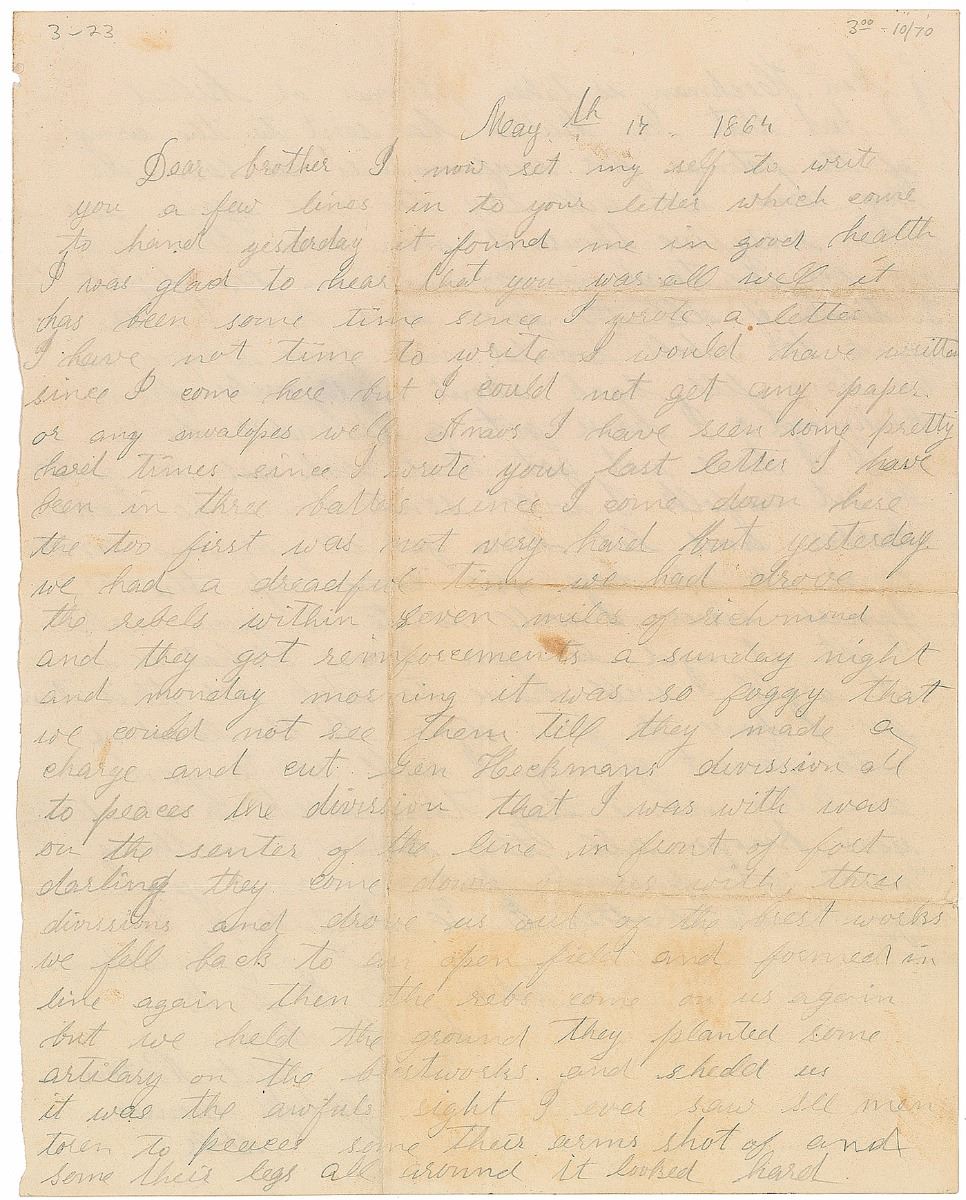 3-23
3⁰⁰ - 10/70
May th 17. 1864
Dear brother I now set my self to write
you a few lines in to your letter which come
to hand yesterday it found me in good health
I was glad to hear that you was all well it
has been some time since I wrote a letter
I have not time to write I would have written
since I come here but I could not get any paper
or any invalopes well Amos I have seen some pretty
hard times since I wrote your last letter I have
been in three battels since I come down here
the too first was not very hard but yesterday
we had a dreadful time we had drove
the rebels within seven miles of richmond
and they got reinforcements a sunday night
and monday morning it was so foggy that
we could not see them till they made a
charge and cut Gen Heckmans division all
to peaces the division that I was with was
on the senter of the line in front of fort
darling they come down on us with three
divisions and drove us out of the brest works
we fell back to an open field and formed in
line again then the rebs come on us again
but we held the ground they planted some
artilary on the brestworks and shelld us
it was the awfuls sight I ever saw see men
toren to peaces some their arms shot of and
some their legs all around it looked hard